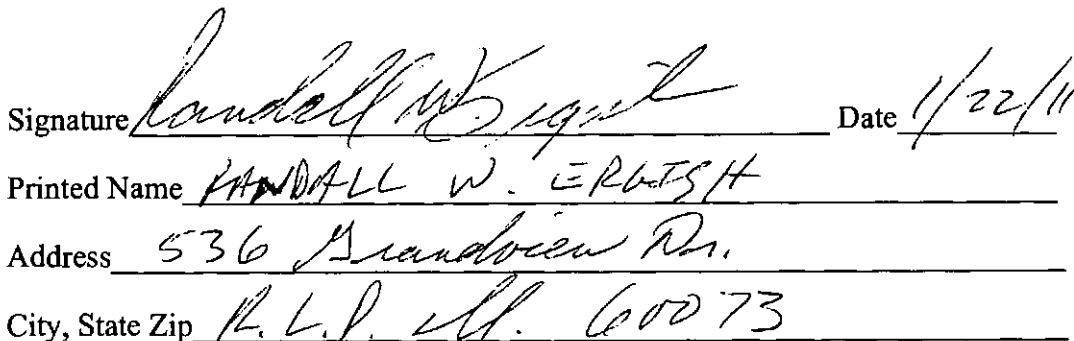 Signature Randall W. Date 1/22/11
Printed Name RANDALL W.
Address 536 Grandview Dr.
City, State Zip R.L.P. Ill. 60073